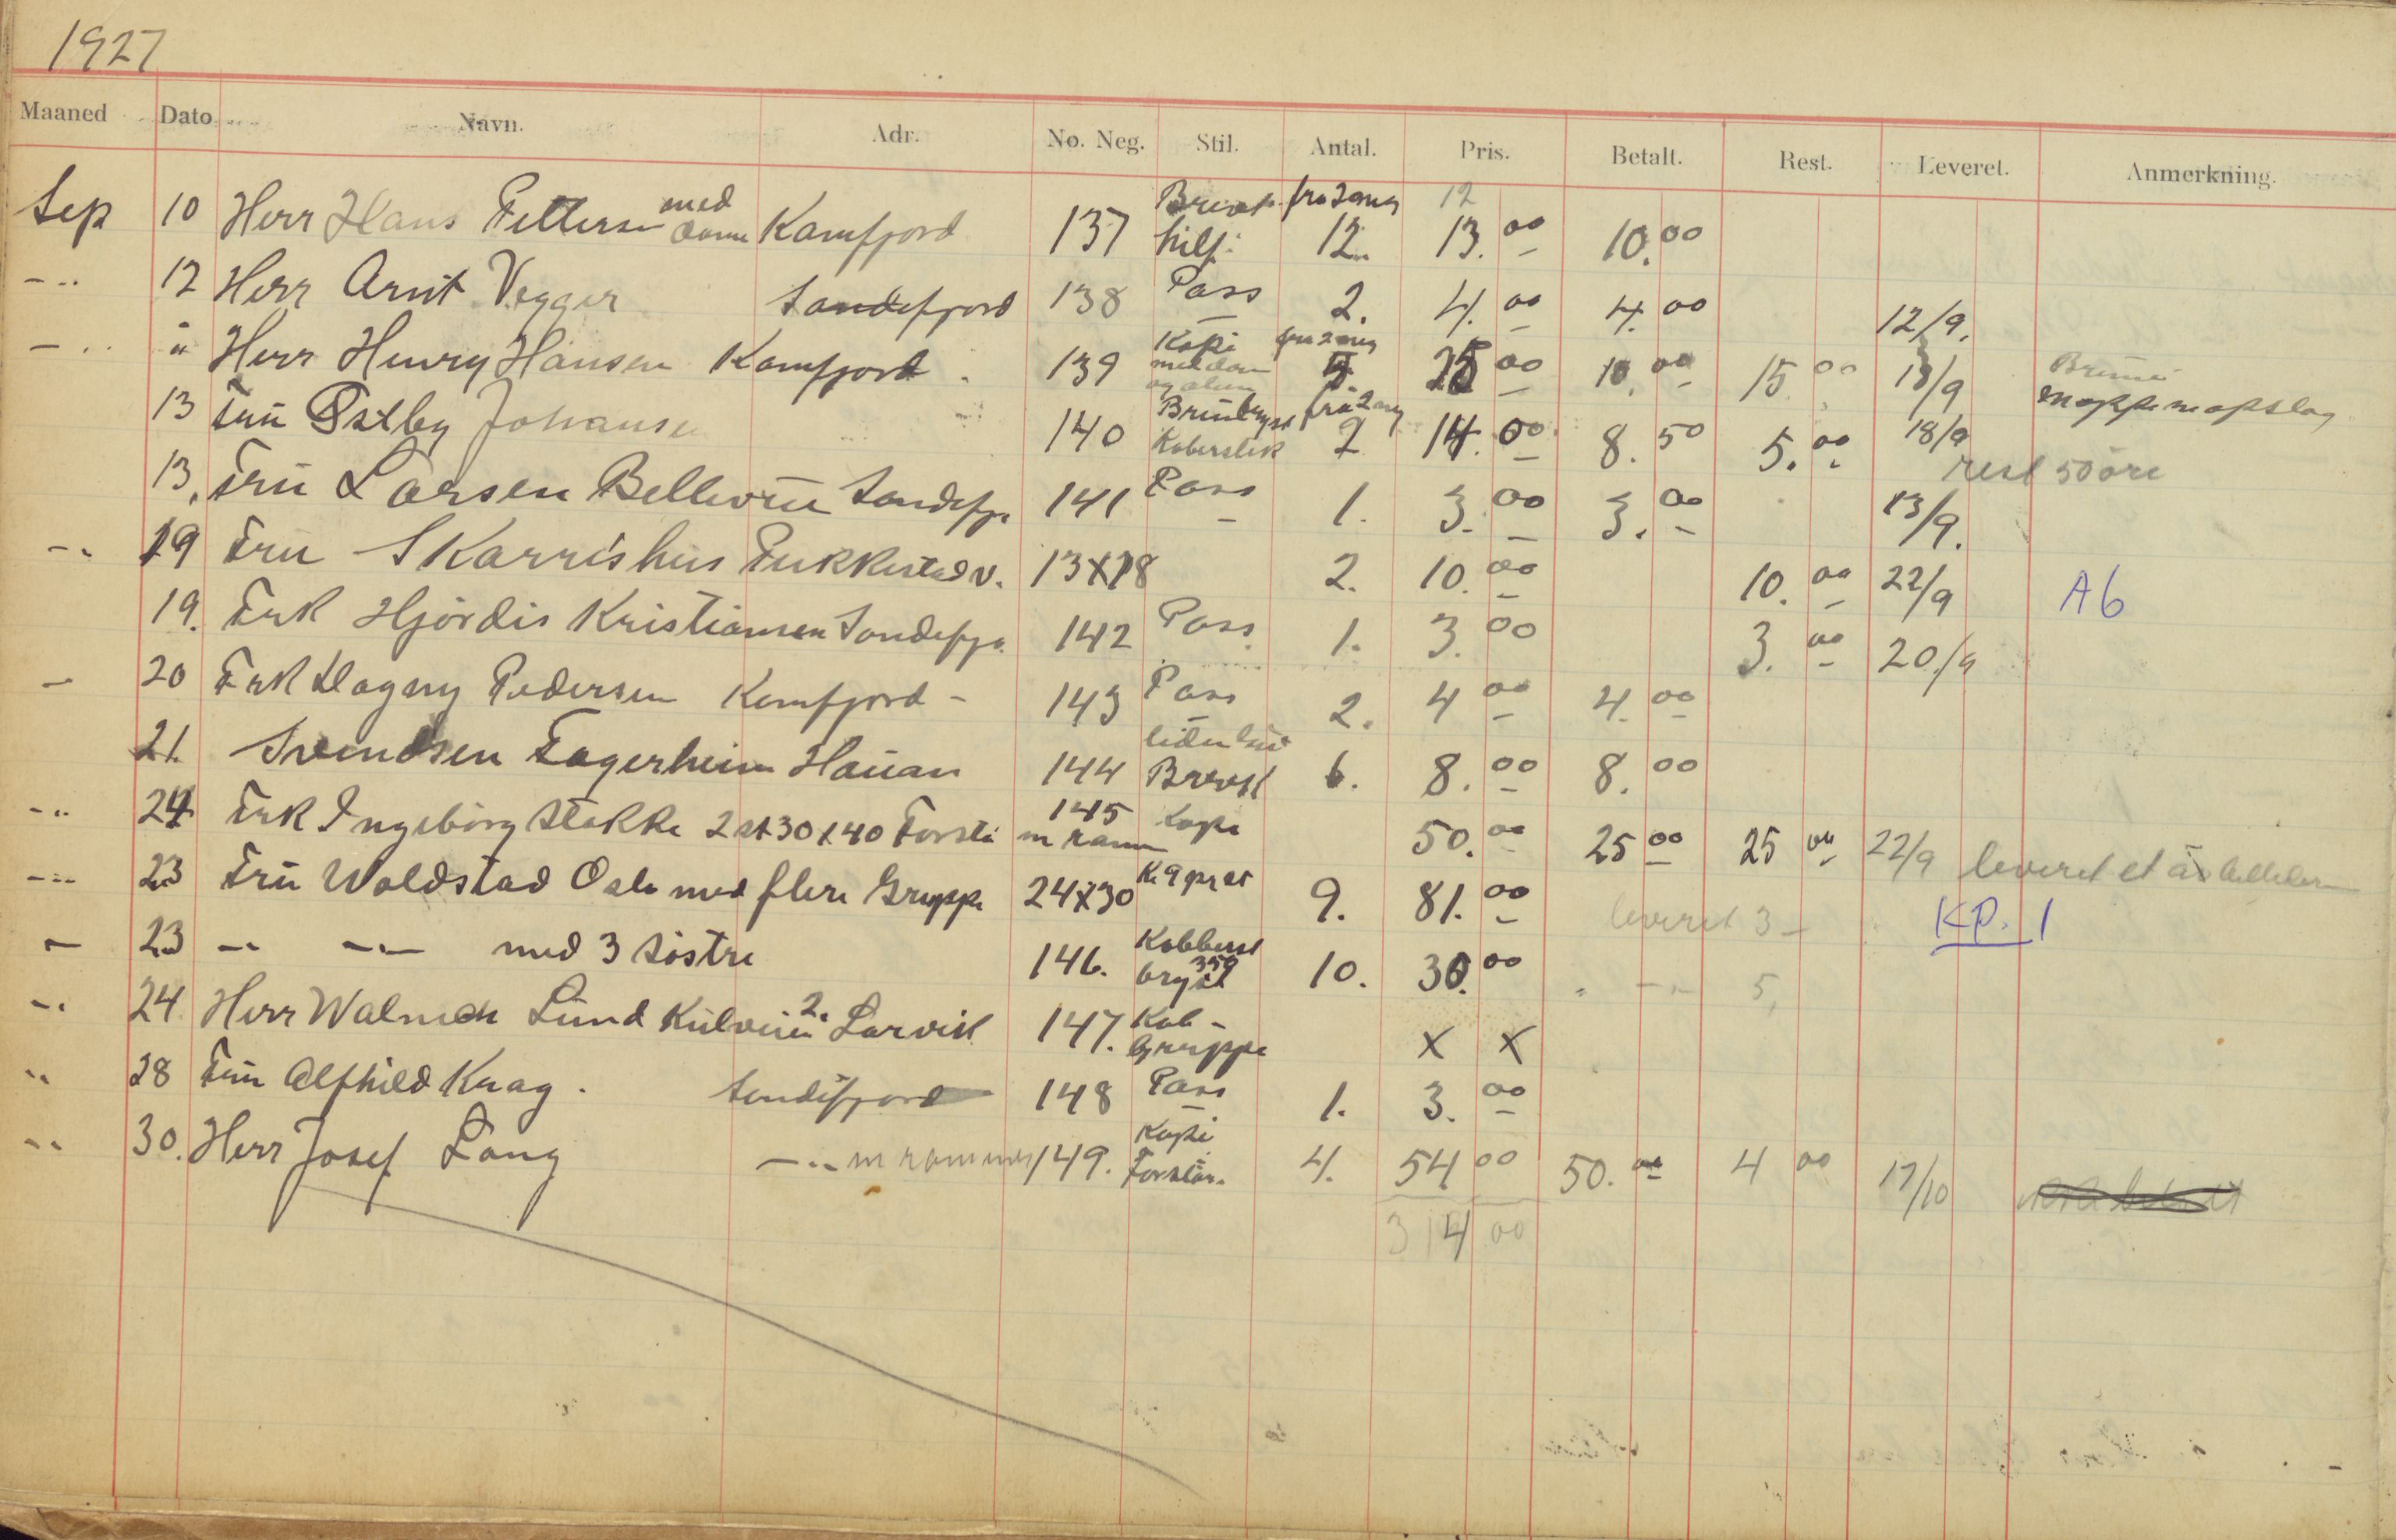 1927
Maaned Dato Navn. Adr. No. Neg. Stil. Antal. Pris. Betalt. Rest. Leveret. Anmerkning.
Sep 10 Herr Hans Pettersen med dame Kamfjord 137 12. 13.00 10.00
12
-.. 12 Herr Arnt Vegger Sandefjord 138 Pass 2. 4.00 4.00 12/9.
-.. " Herr Henry Hansen Kamfjord 139 Kopi 25 00 10.00 15.00 13/9
13 Fru Østby Johansen 140 2 14.00 8.50 5.00 18/9
rest 50 öre
13. Fru Larsen Bellevue Sandefj. 141 Pass 1. 3.00 3.00 13/9.
-.. 19 Fru Skarrishus Pukkestadv. 13X18 2. 10.00 10.00 22/9 A6
19. Frk Hjørdis Kristiansen Sandefjo. 142 Pass 1. 3.00 3.00 20/9
- 20 Frk Dagny Pedersen Kamfjord - 143 Pass 2. 4 00 4.00
21. Svendsen Fagerheim Hauan 144 6. 8.00 8.00
-.. 24 Frk Ingebörg Stokke 2 st 30X40 Forstö m ramm 145 Kopi 50.00 25 00 25 00 22/9 leveret et
-... 23 Fru Woldstad Oslo med flere Gruppe 24X30 9. 81.00 leveret 3 - KP. 1
- 23 -.. -.- med 3 söstre 146. Kobberst bryst 10. 30.00 -.- 5,
-.. 24 Herr Lund 2. Larvik 147. Kob - Gruppe X X
-.. 28 Fru Alfhild Krag. Sandefjord 148 Pass 1. 3.00
-.. 30. Herr Josef Lang -.. m rammer 149. Kopi Forstör. 4. 54 00 50.00 4 00 17/10
314 00